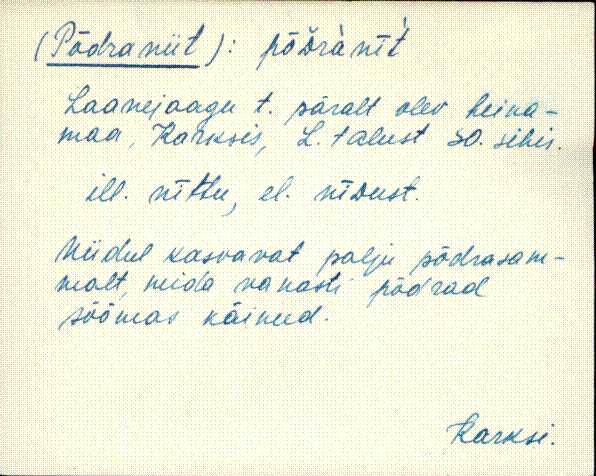 (Põdraniit): põdràniť
Laanejaagu t. päralt olev heina-
maa, Karksis, L. talust SO. sihis.
ill. nīttu, el. nīdust.
Niidul kasvavat palju põdrasam-
malt, mida vanasti põdrad
söömas käinud.
Karksi.